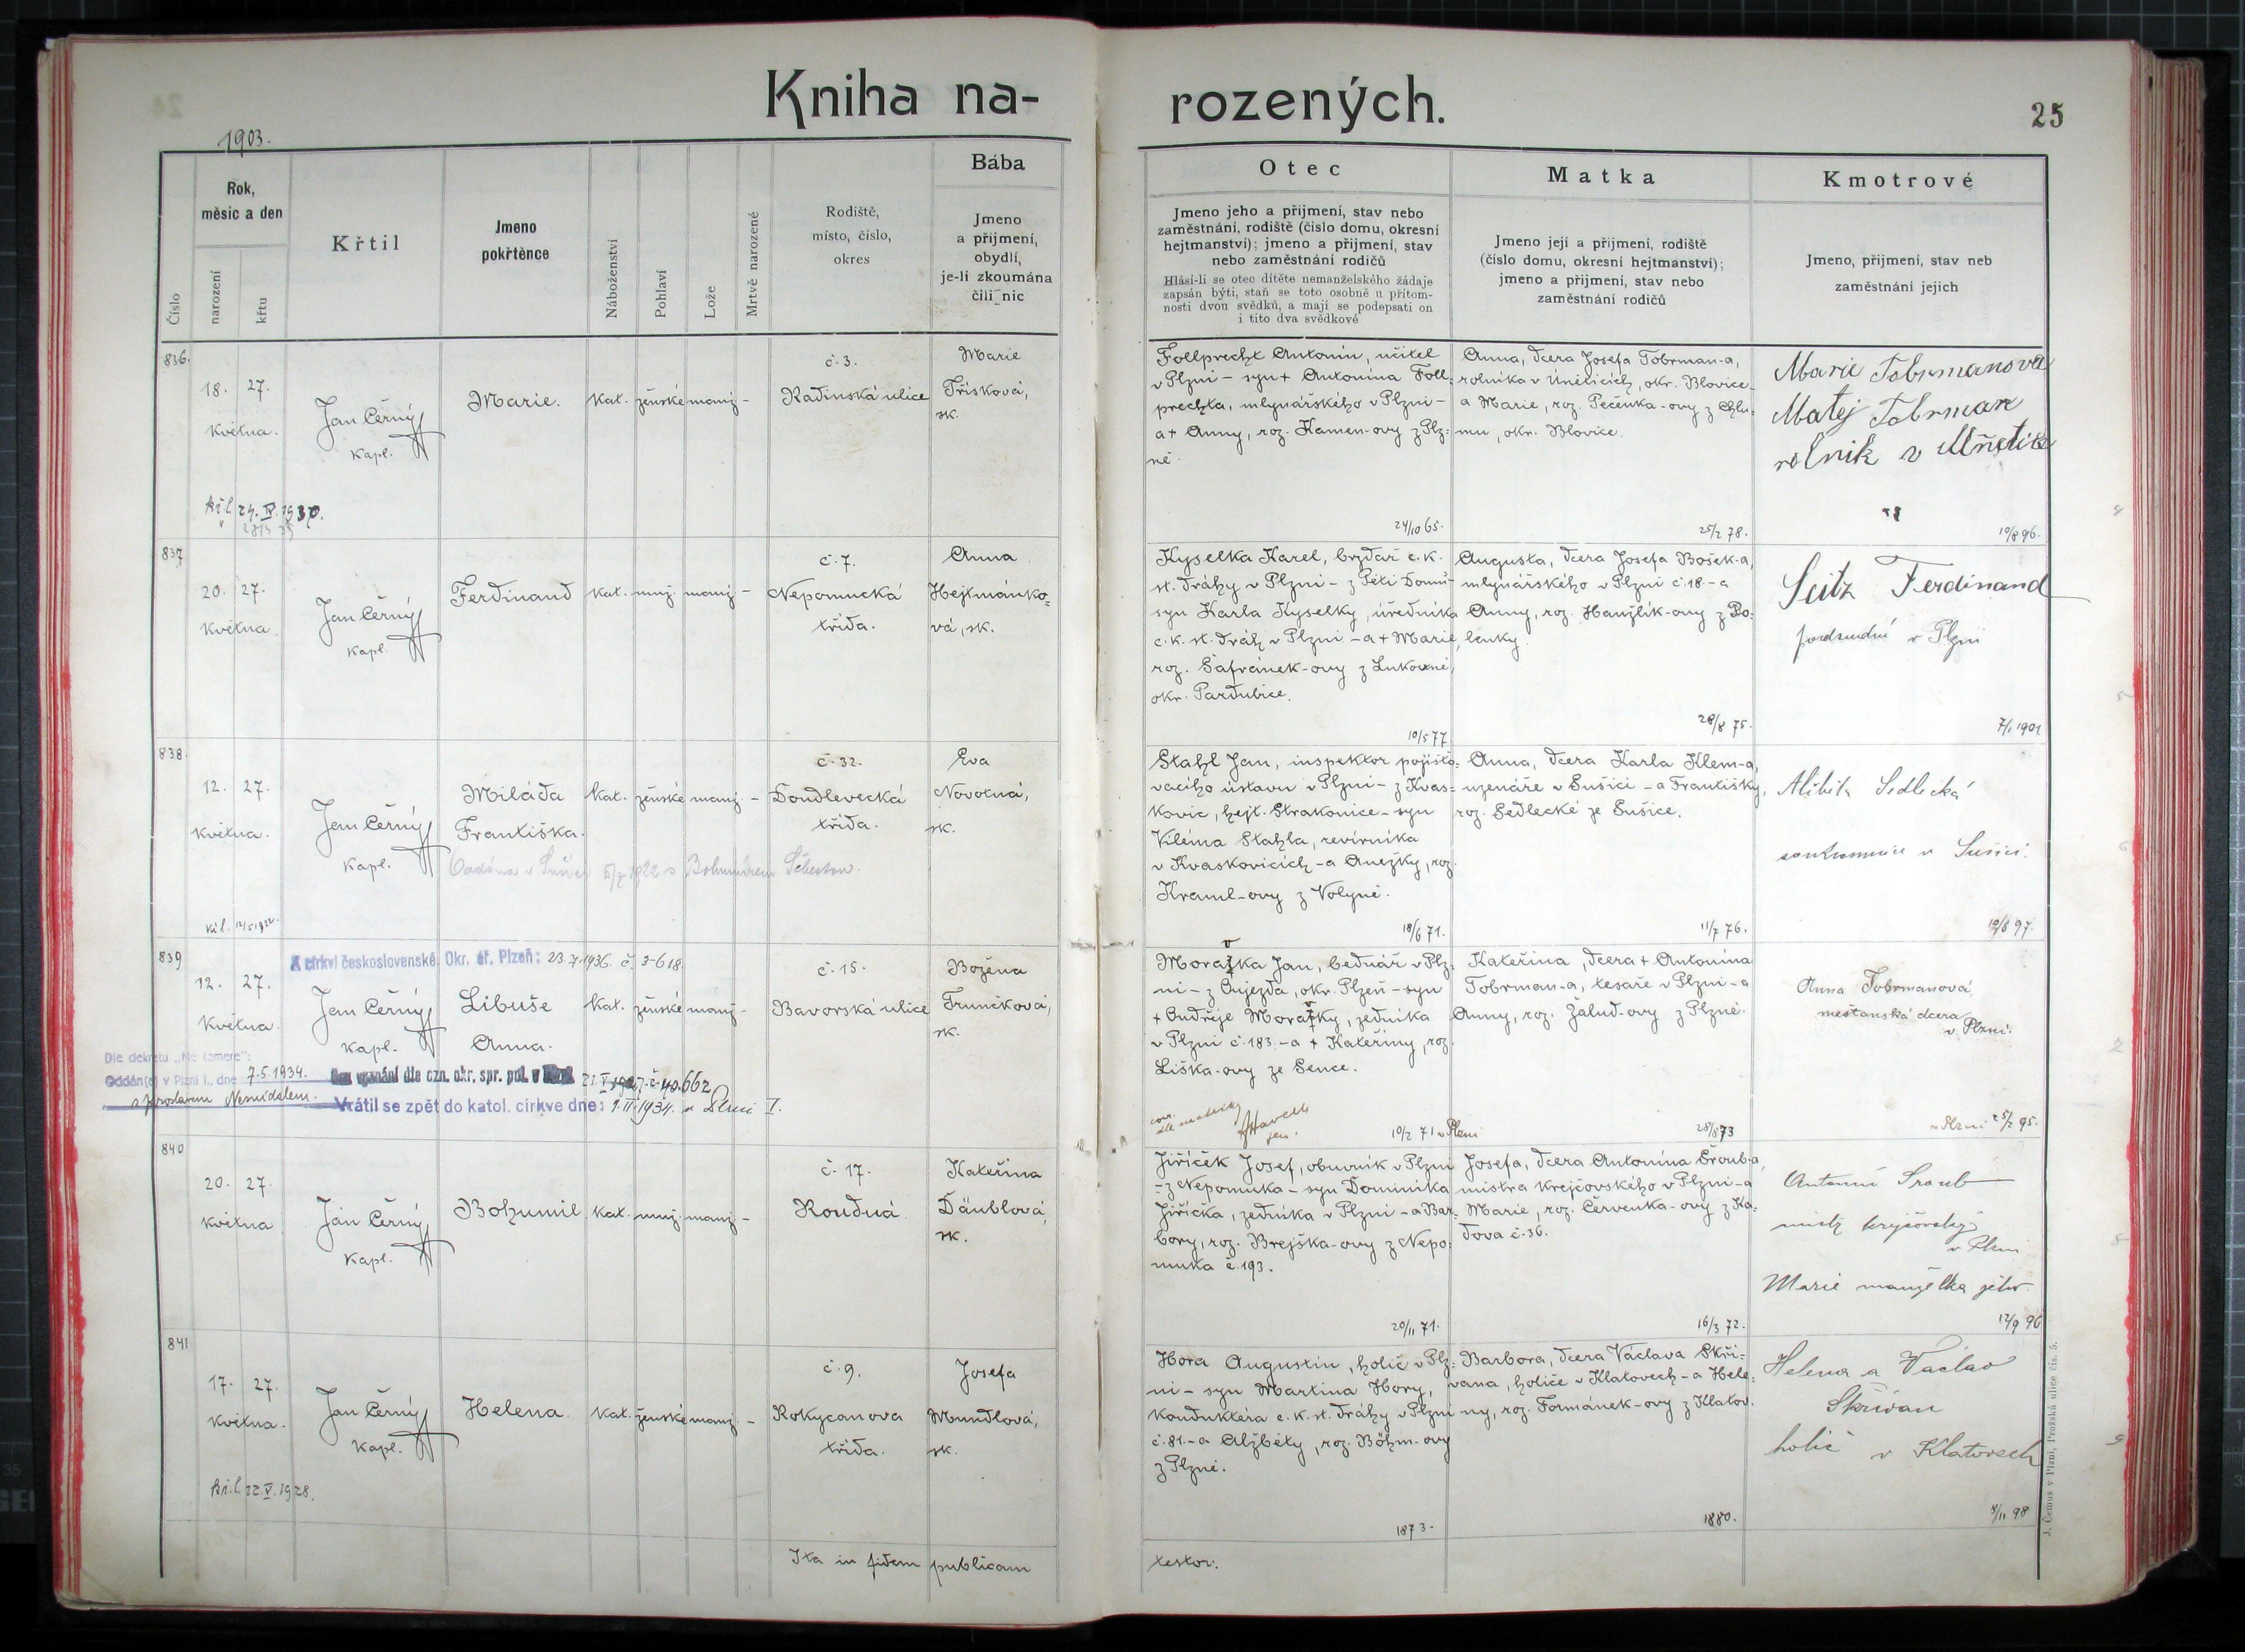 Kniha na-
rozených.
25
1903.
Číslo
Rok,
měsíc a den
narození
křtu
Křtil
Jmeno
pokřtěnce
Náboženství
Pohlaví
Lože
Mrtvě narozené
Rodiště,
místo, číslo,
okres
Bába
Jmeno
a přijmení,
obydlí,
je-li zkoumána
čili nic
Otec
Jmeno jeho a přijmení, stav nebo
zaměstnání, rodiště (číslo domu, okresní
hejtmanství); jmeno a přijmení, stav
nebo zaměstnání rodičů
Hlásí-li se otec dítěte nemanželského žádaje
zapsán býti, staň se toto osobně u přítom-
nosti dvou svědků, a mají se podepsati on
i tito dva svědkové
Matka
Jmeno její a přijmení, rodiště
(číslo domu, okresní hejtmanství);
jmeno a přijmení, stav nebo
zaměstnání rodičů
Kmotrové
Jmeno, přijmení, stav neb
zaměstnání jejich
836.
18. 27.
května.
Jan Černý
kapl.
Marie.
kat. ženské manž. -
č. 3.
Radinská ulice
Marie
Třísková,
zk.
biř. 24. IV. 1930.
Follprecht Antonín, učitel
v Plzni - syn + Antonína Foll-
prechta, mlynářského v Plzni -
a + Anny, roz. Kamen-ovy z Plz-
ně.
24/10 65.
Anna, dcera Josefa Tobrman-a,
rolníka v Úněticích, okr. Blovice -
a Marie, roz. Pečenka-ovy z Chlu-
mu, okr. Blovice.
25/2 78.
Marie Tobrmanova
Matěj Tobrman
rolník v
10/8 96.
837
20. 27.
května.
Jan Černý
kapl.
Ferdinand
kat. muž. manž. -
č. 7.
Nepomucká
třída.
Anna
Hejtmánko-
vá, zk.
Kyselka Karel, brzdař c. k.
st. dráhy v Plzni - z Pěti Domů -
syn Karla Kyselky, úředníka
c. k. st. dráh v Plzni - a + Marie,
roz. Šafránek-ovy z Lukovně,
okr. Pardubice.
10/5 77.
Augusta, dcera Josefa Bošek-a,
mlynářského v Plzni č. 18. - a
Anny, roz. Hanzlík-ovy z Bo-
lenky.
28/8 75.
Seitz Ferdinand
v Plzni
7/1 1901
838.
12. 27.
května.
Jan Černý
kapl.
Miláda
Františka.
kat. ženské manž. -
č. 32.
Doudlevecká
třída.
Eva
Novotná,
zk.
Oddána v Sušici 1922 s Bohumírem
Stahl Jan, inspektor pojišťo-
vacího ústavu v Plzni - z Kvas-
kovic, hejt. Strakonice - syn
Viléma Stahla, revírníka
v Kvaskovicích - a Anežky, roz.
Kraml-ovy z Volyně.
18/6 71.
Anna, dcera Karla Klem-a,
uzenáře v Sušici - a Františky,
roz. Sedlecké ze Sušice.
11/7 76.
Sedlecká
soukromnice v Sušici.
10/8 97.
839
K církvi československé. Okr. úř. Plzeň: 23.7.1936. č. 3-618.
12. 27.
května.
Jan Černý
kapl.
Libuše
Anna.
kat. ženské manž. -
č. 15.
Bavorská ulice
Božena
Trunčková,
zk.
Dle dekretu „Ne temere":
Oddán(a) v Plzni I., dne 7.5.1934.
s Jaroslavem Nesnídalem.
Bez vyznání dle ozn. okr. spr. pol. v
Vrátil se zpět do katol. církve dne: 1.II.1934. v Plzni I.
Moravka Jan, bednář v Plz-
ni - z Oujezda, okr. Plzeň - syn
+ Ondřeje Moravky, zedníka
v Plzni č. 183. - a + Kateřiny, roz.
Liška-ovy ze Sence.
10/2 71 v Plzni
Kateřina, dcera + Antonína
Tobrman-a, tesaře v Plzni - a
Anny, roz. Žalud-ovy z Plzně.
28/8 73
Anna Tobrmanová,
měšťanská dcera
v Plzni.
v Plzni 25/2 95.
840
20. 27.
května
Jan Černý
kapl.
Bohumil.
kat. muž. manž. -
č. 17.
Roudná.
Kateřina
Däublová,
zk.
Jiříček Josef, obuvník v Plzni
- z Nepomuka - syn Dominika
Jiříčka, zedníka v Plzni - a Bar-
bory, roz. Brejška-ovy z Nepo-
muka č. 193.
20/11 71.
Josefa, dcera Antonína Šroub-a,
mistra krejčovského v Plzni - a
Marie, roz. Červenka-ovy z Ka-
dova č. 36.
16/3 72.
Antonín Šroub
mistr krejčovský
v Plzni
Marie manželka jeho
12/9 96
841
17. 27.
května.
Jan Černý
kapl.
Helena.
kat. ženské manž. -
č. 9.
Rokycanova
třída.
Josefa
Mundlová,
zk.
biř. 22. V. 1928.
Hora Augustin, holič v Plz-
ni - syn Martina Hory,
konduktéra c. k. st. dráhy v Plzni
č. 81. - a Alžběty, roz. Böhm-ovy
z Plzně.
1873.
Barbora, dcera Václava Skři-
vana, holiče v Klatovech - a Hele-
ny, roz. Formánek-ovy z Klatov.
1880.
Helena a Václav
Skřivan
holič v Klatovech
4/11 98
Ita in fidem publicam
testor.
J. Čemus v Plzni, Pražská ulice čís. 5.